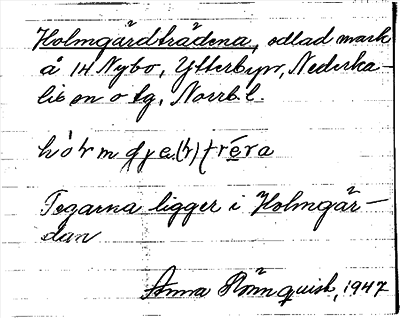 Holmgärdträdena, odlad mark
å 14 Nybo, Ytterbyn, Nederka-
lix sn o tg, Norrb. l.
hò̀rmgjeₐ(r)tre̱ra
Tegarna ligger i Holmgär-
dan
Anna Rönnquist, 1947